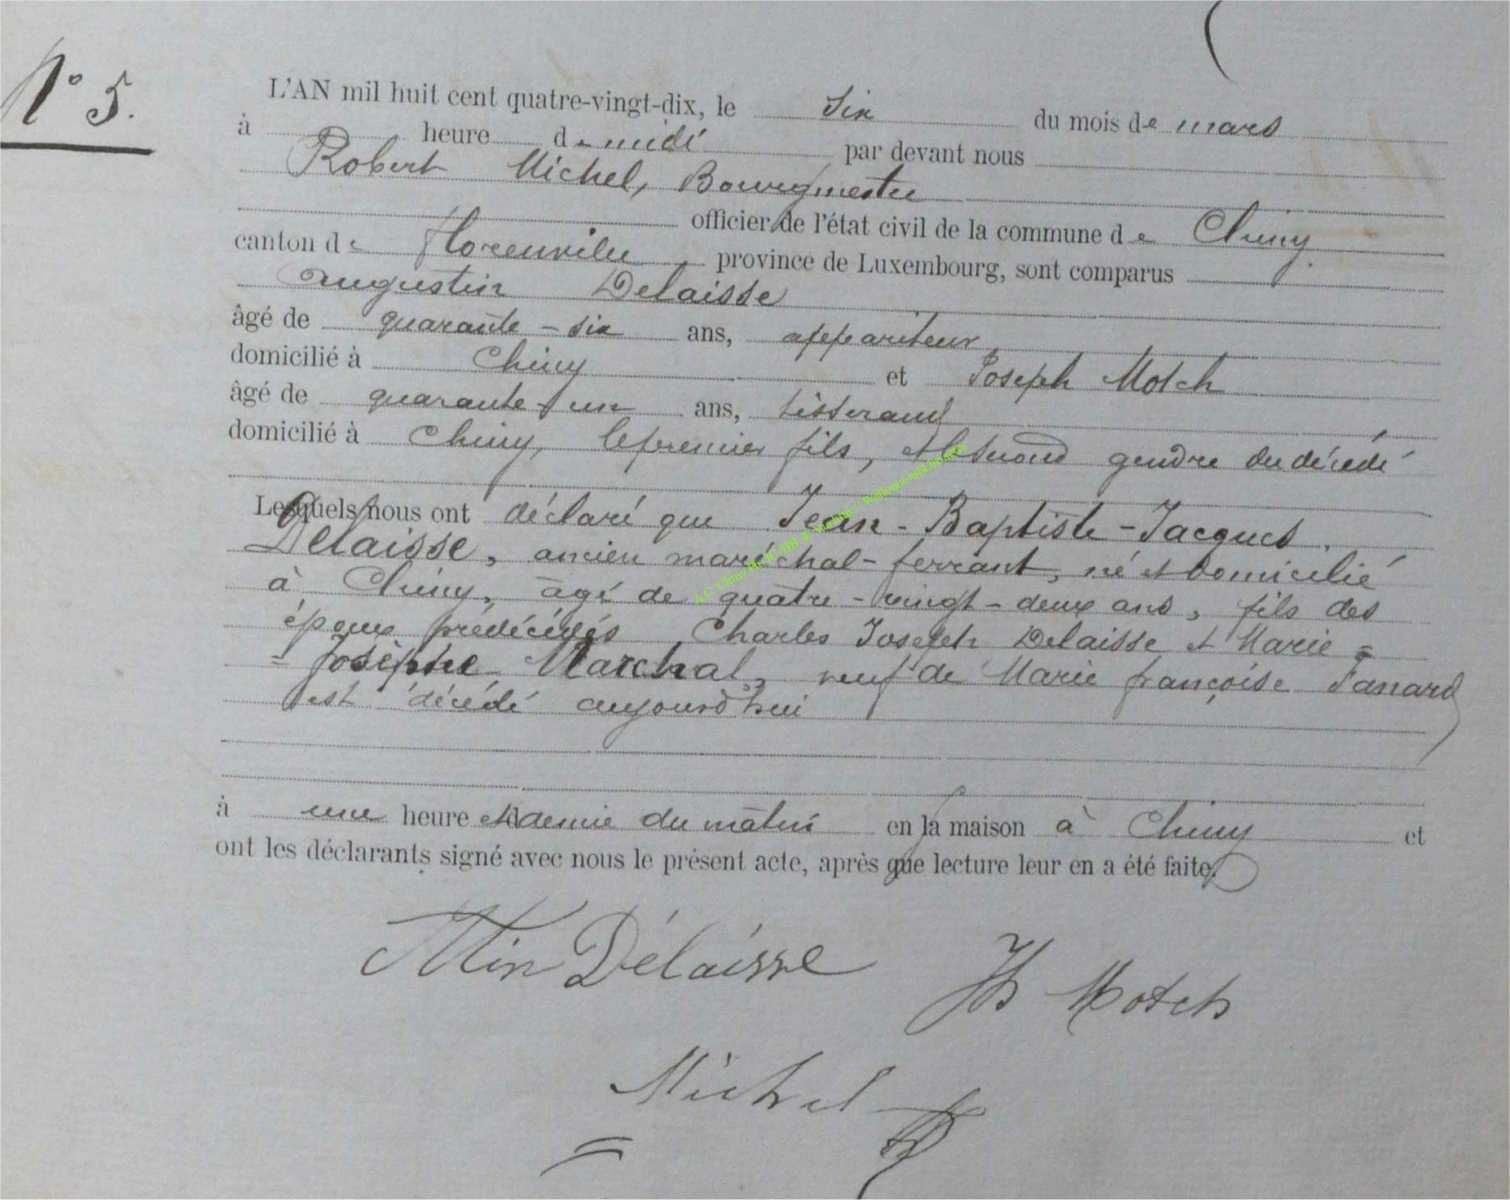 N° 5.
L'AN mil huit cent quatre-vingt-dix, le six du mois de mars
à heure de midi par devant nous
Robert Michel, Bourgmestre
officier de l'état civil de la commune de Chiny
canton de Florenville, province de Luxembourg, sont comparus
Augustin Delaisse
âgé de quarante-six ans, appariteur,
domicilié à Chiny et Joseph Motch
âgé de quarante-un ans, tisserand
domicilié à Chiny, le premier fils, et le second gendre du décédé
Lesquels nous ont déclaré que Jean-Baptiste-Jacques
Delaisse, ancien maréchal-ferrant, né et domicilié
à Chiny, âgé de quatre-vingt-deux ans, fils des
époux prédécédés Charles Joseph Delaisse et Marie-
Josèphe Marchal, veuf de Marie françoise
est décédé aujourd'hui
à une heure et demie du matin en la maison à Chiny et
ont les déclarants signé avec nous le présent acte, après que lecture leur en a été faite.
Délaisse Jh Motch
Michel R